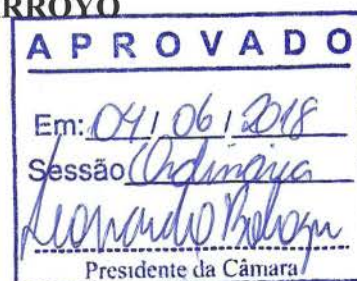 RROYO
APROVADO
Em: 04/06/2018
Sessão Ordinária
Leonardo
Presidente da Câmara